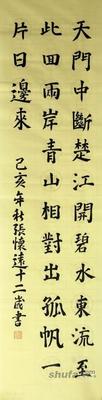 天門中斷楚江開碧水東流至
此回兩岸青山相對出孤帆一
片日邊來
己亥年秋張懷遠十二歲書